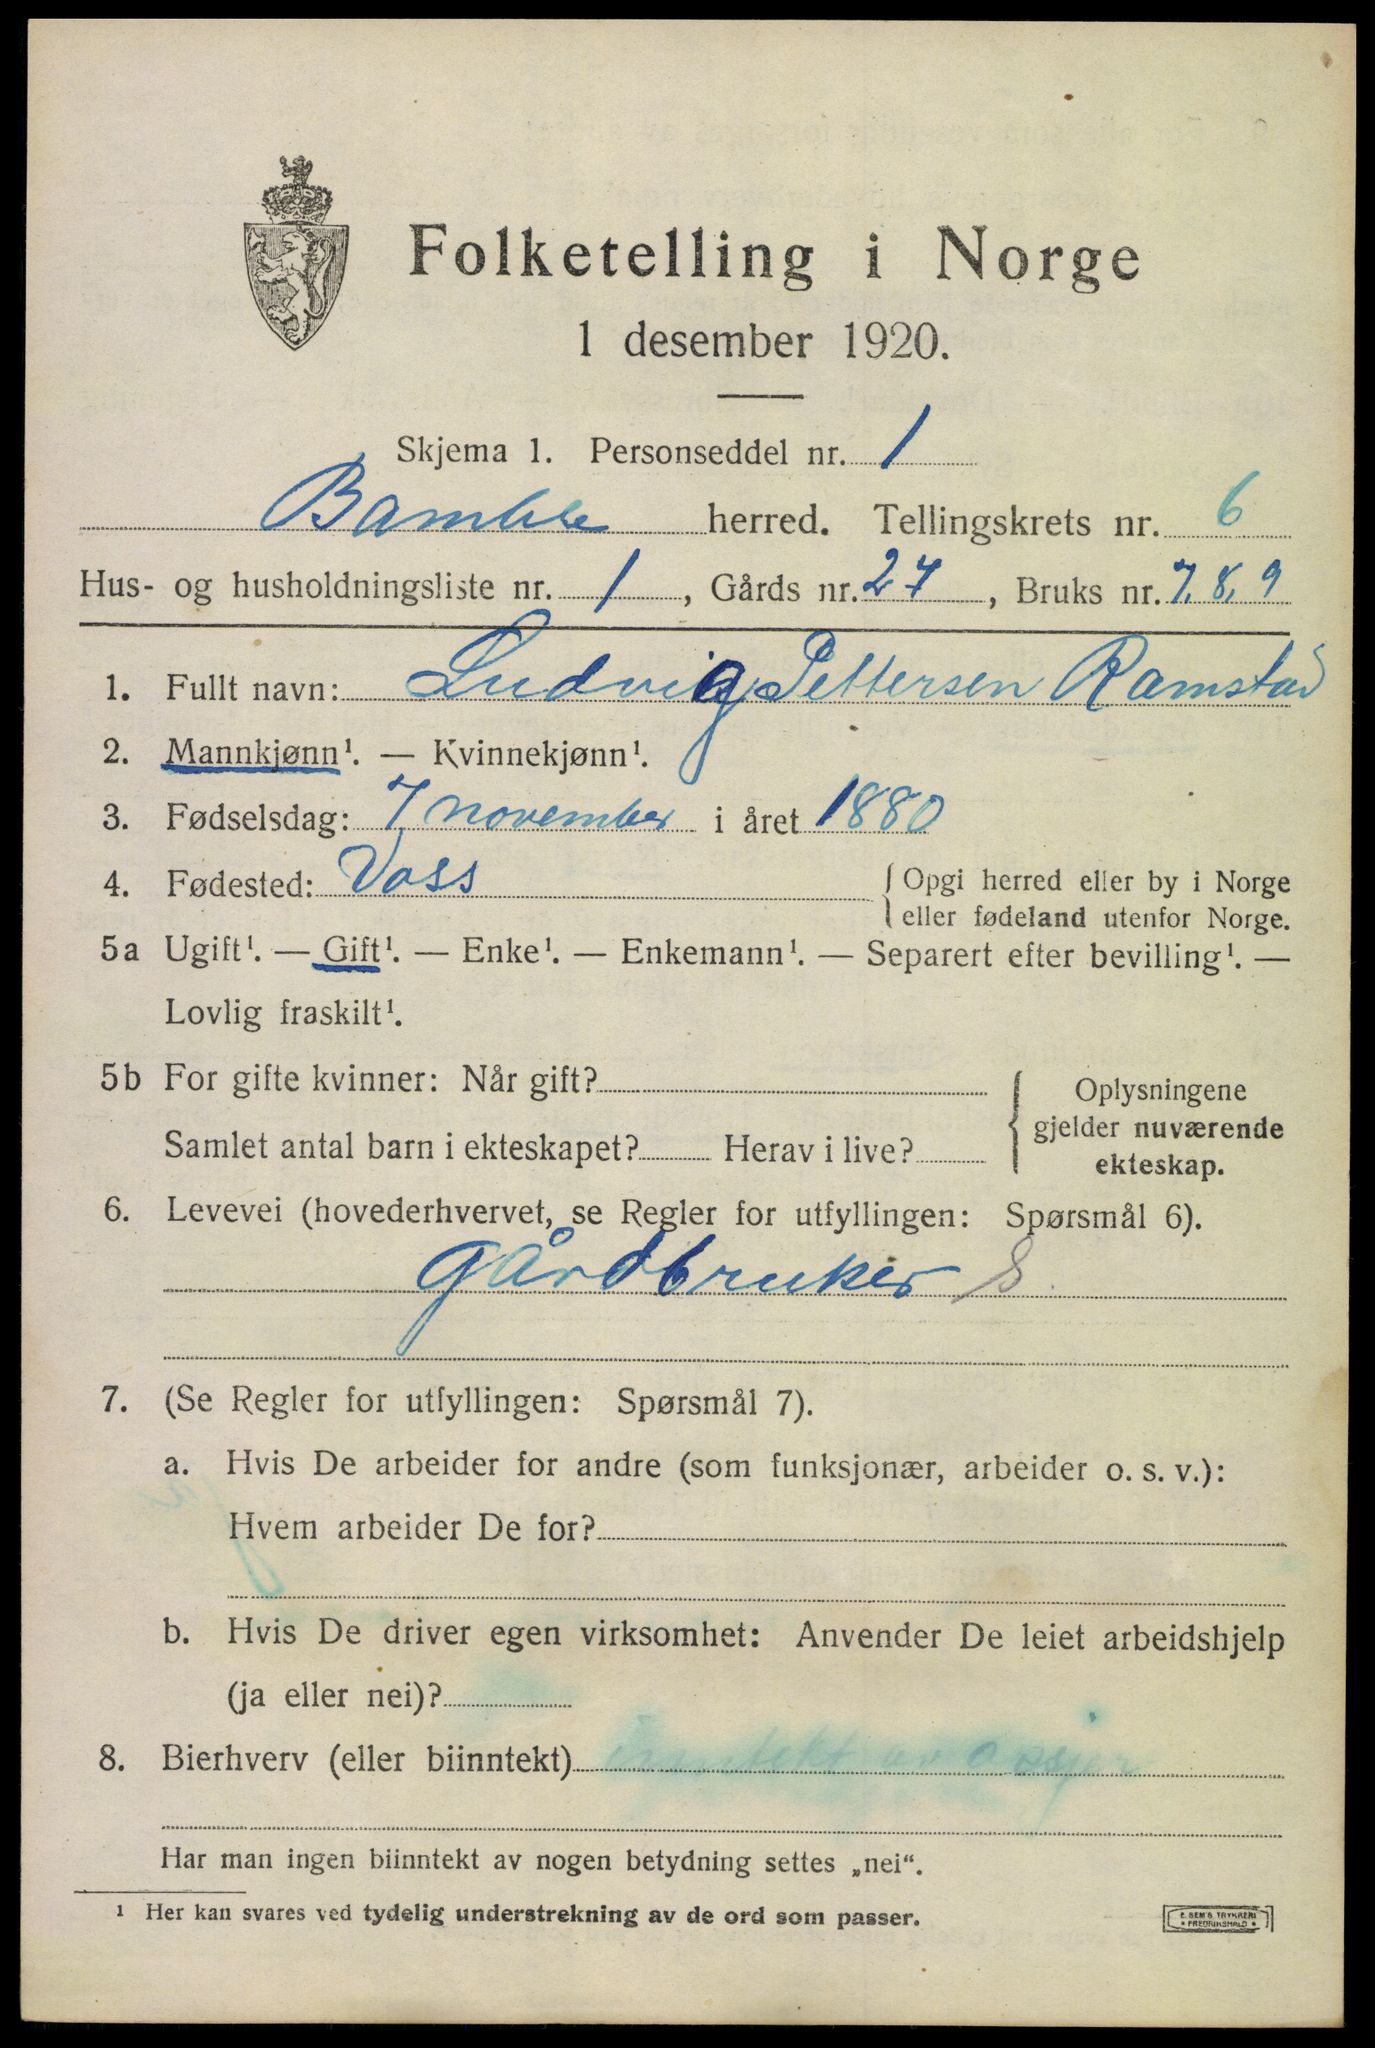 Folketelling i Norge
1 desember 1920.
Skjema 1. Personseddel nr. 1
Bamble herred. Tellingskrets nr. 6
Hus- og husholdningsliste nr. 1, Gårds nr. 27, Bruks nr. 7, 8, 9
1. Fullt navn: Ludvig Pettersen Ramstad
2. Mannkjønn¹. — Kvinnekjønn¹.
3. Fødselsdag: 7 november i året 1880
4. Fødested: Voss { Opgi herred eller by i Norge
eller fødeland utenfor Norge.
5a Ugift¹. — Gift¹. — Enke¹. — Enkemann¹. — Separert efter bevilling¹. —
Lovlig fraskilt¹.
5b For gifte kvinner: Når gift?
Samlet antal barn i ekteskapet? Herav i live?
Oplysningene
gjelder nuværende
ekteskap.
6. Levevei (hovederhvervet, se Regler for utfyllingen: Spørsmål 6).
Gårdbruker S.
7. (Se Regler for utfyllingen: Spørsmål 7).
a. Hvis De arbeider for andre (som funksjonær, arbeider o. s. v.):
Hvem arbeider De for?
b. Hvis De driver egen virksomhet: Anvender De leiet arbeidshjelp
(ja eller nei)?
8. Bierhverv (eller biinntekt)
Har man ingen biinntekt av nogen betydning settes „nei“.
¹ Her kan svares ved tydelig understrekning av de ord som passer.
E. SEM'S TRYKKERI
FREDRIKSHALD